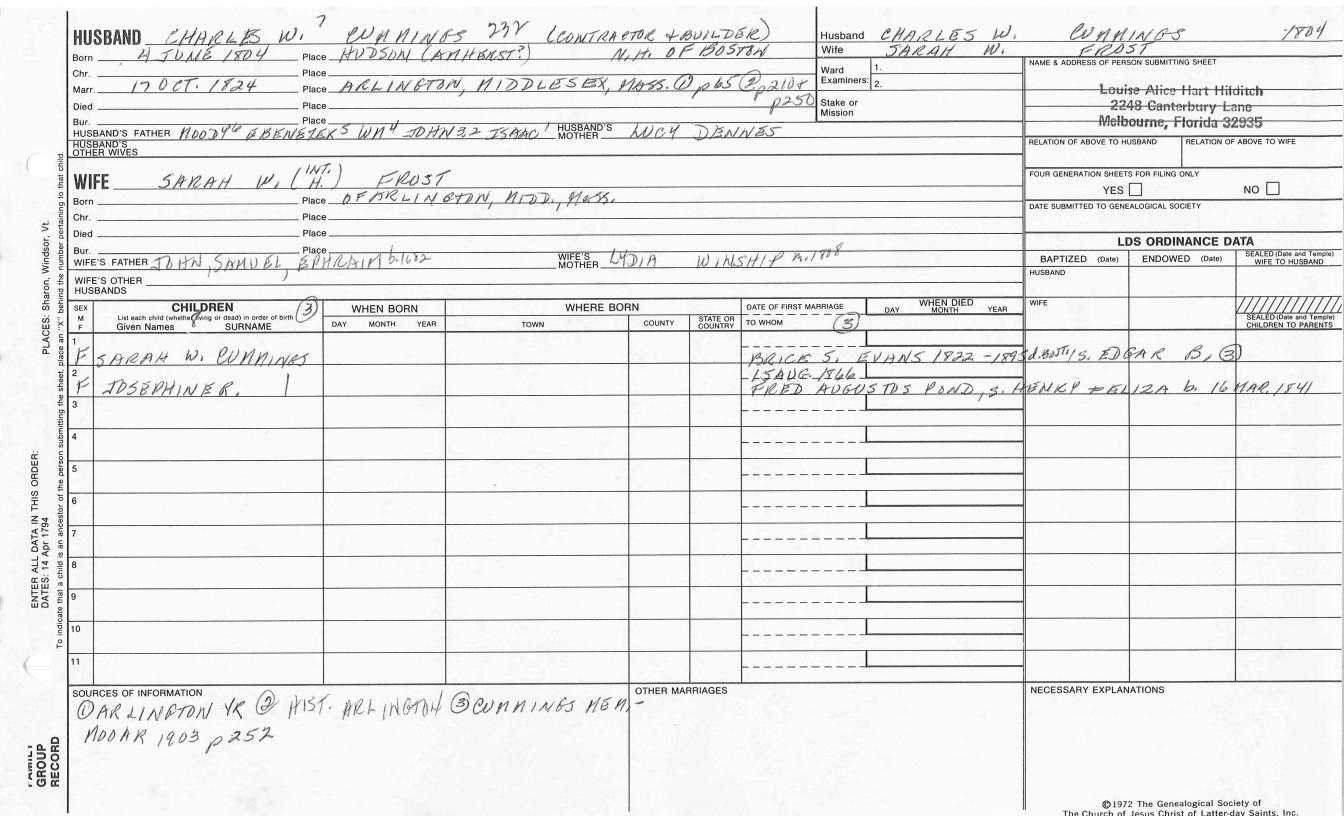 HUSBAND CHARLES W. 7 CUMMINGS 232 (CONTRACTOR & BUILDER)
Born 4 JUNE 1804 Place HUDSON (AMHERST?) N.H. OF BOSTON
Chr. Place
Marr. 17 OCT. 1824 Place ARLINGTON, MIDDLESEX, MASS. ① p65 ② p210 &
p250
Died Place
Bur. Place
HUSBAND'S FATHER MOODY6 EBENEZER5 WM4 JOHN32 ISAAC1 HUSBAND'S MOTHER LUCY DENNES
HUSBAND'S OTHER WIVES
WIFE SARAH W. (INT. H.) FROST
Born Place OF ARLINGTON, MIDD., MASS.
Chr. Place
Died Place
Bur. Place
WIFE'S FATHER JOHN, SAMUEL, EPHRAIM b.1682 WIFE'S MOTHER LYDIA WINSHIP m.1808
WIFE'S OTHER HUSBANDS
Husband CHARLES W. CUMMINGS 1804
Wife SARAH W. FROST
Ward Examiners: 1.
2.
Stake or Mission
NAME & ADDRESS OF PERSON SUBMITTING SHEET
Louise Alice Hart Hilditch
2248 Canterbury Lane
Melbourne, Florida 32935
RELATION OF ABOVE TO HUSBAND RELATION OF ABOVE TO WIFE
FOUR GENERATION SHEETS FOR FILING ONLY
YES NO
DATE SUBMITTED TO GENEALOGICAL SOCIETY
LDS ORDINANCE DATA
BAPTIZED (Date) ENDOWED (Date) SEALED (Date and Temple) WIFE TO HUSBAND
HUSBAND
WIFE
SEALED (Date and Temple) CHILDREN TO PARENTS
SEX M F
CHILDREN ③
List each child (whether living or dead) in order of birth
Given Names SURNAME
WHEN BORN
DAY MONTH YEAR
WHERE BORN
TOWN COUNTY STATE OR COUNTRY
DATE OF FIRST MARRIAGE
TO WHOM ③
WHEN DIED
DAY MONTH YEAR
1
F SARAH W. CUMMINGS BRICE S. EVANS 1822 - 1895 d. BOST./S. EDGAR B, ③
2 15 AUG. 1866
F JOSEPHINE R. | FRED AUGUSTUS POND, s. HENRY & ELIZA b. 16 MAR. 1841
3
4
5
6
7
8
9
10
11
SOURCES OF INFORMATION
① ARLINGTON VR ② HIST. ARLINGTON ③ CUMMINGS MEM,-
MOOAR 1903 p252
OTHER MARRIAGES
NECESSARY EXPLANATIONS
©1972 The Genealogical Society of
The Church of Jesus Christ of Latter-day Saints, Inc.
FAMILY GROUP RECORD
ENTER ALL DATA IN THIS ORDER:
DATES: 14 Apr 1794
PLACES: Sharon, Windsor, Vt.
To indicate that a child is an ancestor of the person submitting the sheet, place an "X" behind the number pertaining to that child.